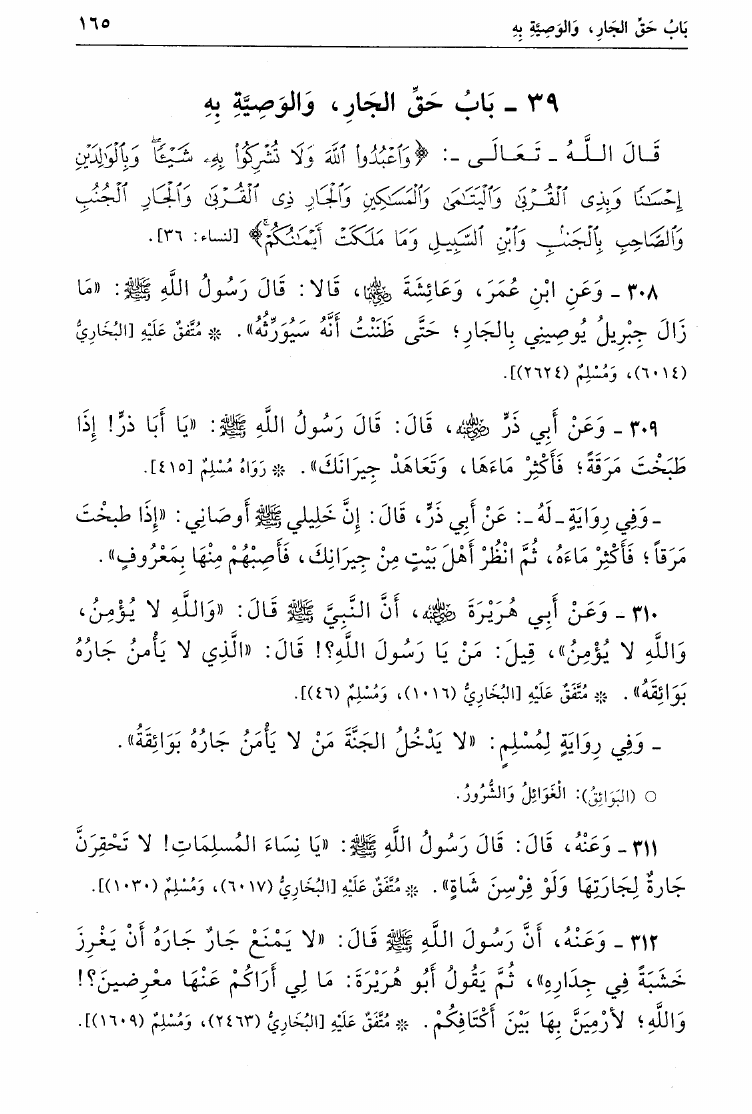 بَابُ حَقِّ الجَارِ، وَالوَصِيَّةِ بِهِ ١٦٥
٣٩ ـ بَابُ حَقِّ الجَارِ، وَالوَصِيَّةِ بِهِ
قَالَ اللَّهُ ـ تَعَالَى ـ: ﴿وَٱعْبُدُوا۟ ٱللَّهَ وَلَا تُشْرِكُوا۟ بِهِۦ شَيْـًٔا ۖ وَبِٱلْوَٰلِدَيْنِ
إِحْسَـٰنًا وَبِذِى ٱلْقُرْبَىٰ وَٱلْيَتَـٰمَىٰ وَٱلْمَسَـٰكِينِ وَٱلْجَارِ ذِى ٱلْقُرْبَىٰ وَٱلْجَارِ ٱلْجُنُبِ
وَٱلصَّاحِبِ بِٱلْجَنۢبِ وَٱبْنِ ٱلسَّبِيلِ وَمَا مَلَكَتْ أَيْمَـٰنُكُمْ ۚ﴾ [لنساء: ٣٦].
٣٠٨ ـ وَعَنِ ابْنِ عُمَرَ، وَعَائِشَةَ رضي الله عنهما، قَالا: قَالَ رَسُولُ اللَّهِ ﷺ: «مَا
زَالَ جِبْرِيلُ يُوصِينِي بِالجَارِ؛ حَتَّى ظَنَنْتُ أَنَّهُ سَيُوَرِّثُهُ». * مُتَّفَقٌ عَلَيْهِ [البُخَارِيُّ
(٦٠١٤)، وَمُسْلِمٌ (٢٦٢٤)].
٣٠٩ ـ وَعَنْ أَبِي ذَرٍّ رضي الله عنه، قَالَ: قَالَ رَسُولُ اللَّهِ ﷺ: «يَا أَبَا ذرٍّ! إِذَا
طَبَخْتَ مَرَقَةً؛ فَأَكْثِرْ مَاءَهَا، وَتَعَاهَدْ جِيرَانَكَ». * رَوَاهُ مُسْلِمٌ [٤١٥].
ـ وَفِي رِوَايَةٍ ـ لَهُ ـ: عَنْ أَبِي ذَرٍّ، قَالَ: إِنَّ خَلِيلي ﷺ أَوصَانِي: «إِذَا طبخْتَ
مَرَقاً؛ فَأَكْثِرْ مَاءَهُ، ثُمَّ انْظُرْ أَهْلَ بَيْتٍ مِنْ جِيرَانِكَ، فَأَصِبْهُمْ مِنْهَا بِمَعْرُوفٍ».
٣١٠ ـ وَعَنْ أَبي هُرَيْرَةَ رضي الله عنه، أَنَّ النَّبِيَّ ﷺ قَالَ: «وَاللَّهِ لا يُؤْمِنُ،
وَاللَّهِ لا يُؤْمِنُ»، قِيلَ: مَنْ يَا رَسُولَ اللَّهِ؟! قَالَ: «الَّذِي لا يَأْمنُ جَارُهُ
بَوَائِقَهُ». * مُتَّفَقٌ عَلَيْهِ [البُخَارِيُّ (١٠١٦)، وَمُسْلِمٌ (٤٦)].
ـ وَفِي رِوَايَةٍ لِمُسْلِمٍ: «لا يَدْخُلُ الجَنَّةَ مَنْ لا يَأْمَنُ جَارُهُ بَوَائِقَهُ».
○ (البَوَائِقُ): الْغَوَائِلُ وَالشُّرُورُ.
٣١١ ـ وَعَنْهُ، قَالَ: قَالَ رَسُولُ اللَّهِ ﷺ: «يَا نِسَاءَ المُسلِمَاتِ! لا تَحْقِرَنَّ
جَارةٌ لِجَارَتِهَا وَلَوْ فِرْسِنَ شَاةٍ». * مُتَّفَقٌ عَلَيْهِ [البُخَارِيُّ (٦٠١٧)، وَمُسْلِمٌ (١٠٣٠)].
٣١٢ ـ وَعَنْهُ، أَنَّ رَسُولَ اللَّهِ ﷺ قَالَ: «لا يَمْنَعْ جَارٌ جَارَهُ أَنْ يَغْرِزَ
خَشَبَةً فِي جِدَارِهِ»، ثُمَّ يَقُولُ أَبُو هُرَيْرَةَ: مَا لِي أَرَاكُمْ عَنْهَا معْرِضينَ؟!
وَاللَّهِ؛ لأَرْمِيَنَّ بِهَا بَيْنَ أَكْتَافِكُمْ. * مُتَّفَقٌ عَلَيْهِ [البُخَارِيُّ (٢٤٦٣)، وَمُسْلِمٌ (١٦٠٩)].